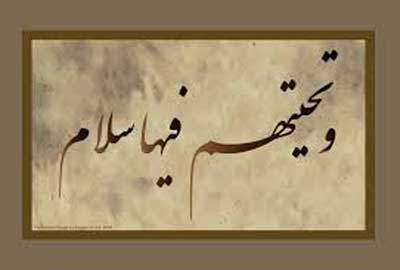 وتحيتهم فيها سلام